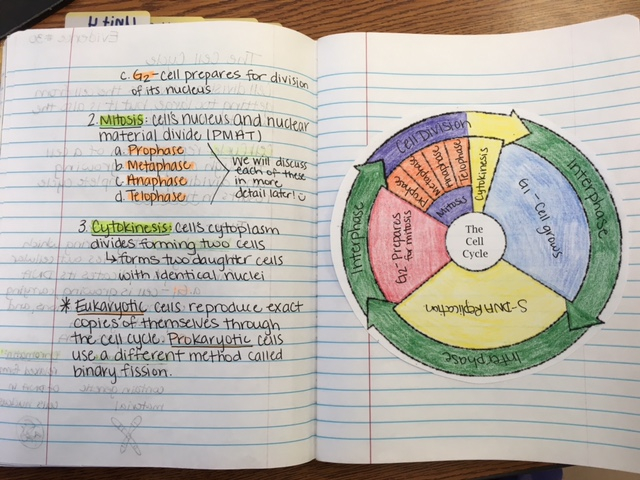 Unit 4
c. G2-cell prepares for division
of its nucleus
2. Mitosis: cell's nucleus and nuclear
material divide (PMAT)
a. Prophase
b. Metaphase
c. Anaphase
d. Telophase
We will discuss
each of these
in more
detail later!
3. Cytokinesis: cells cytoplasm
divides forming two cells
↳ forms two daughter cells
with identical nuclei
* Eukaryotic cells reproduce exact
copies of themselves through
the cell cycle. Prokaryotic cells
use a different method called
binary fission.
Cell Division
Prophase
Metaphase
Anaphase
Telophase
Mitosis
Cytokinesis
Interphase
G1-Cell grows
The
Cell
Cycle
Interphase
G2-Prepares
for mitosis
S-DNA Replication
Interphase